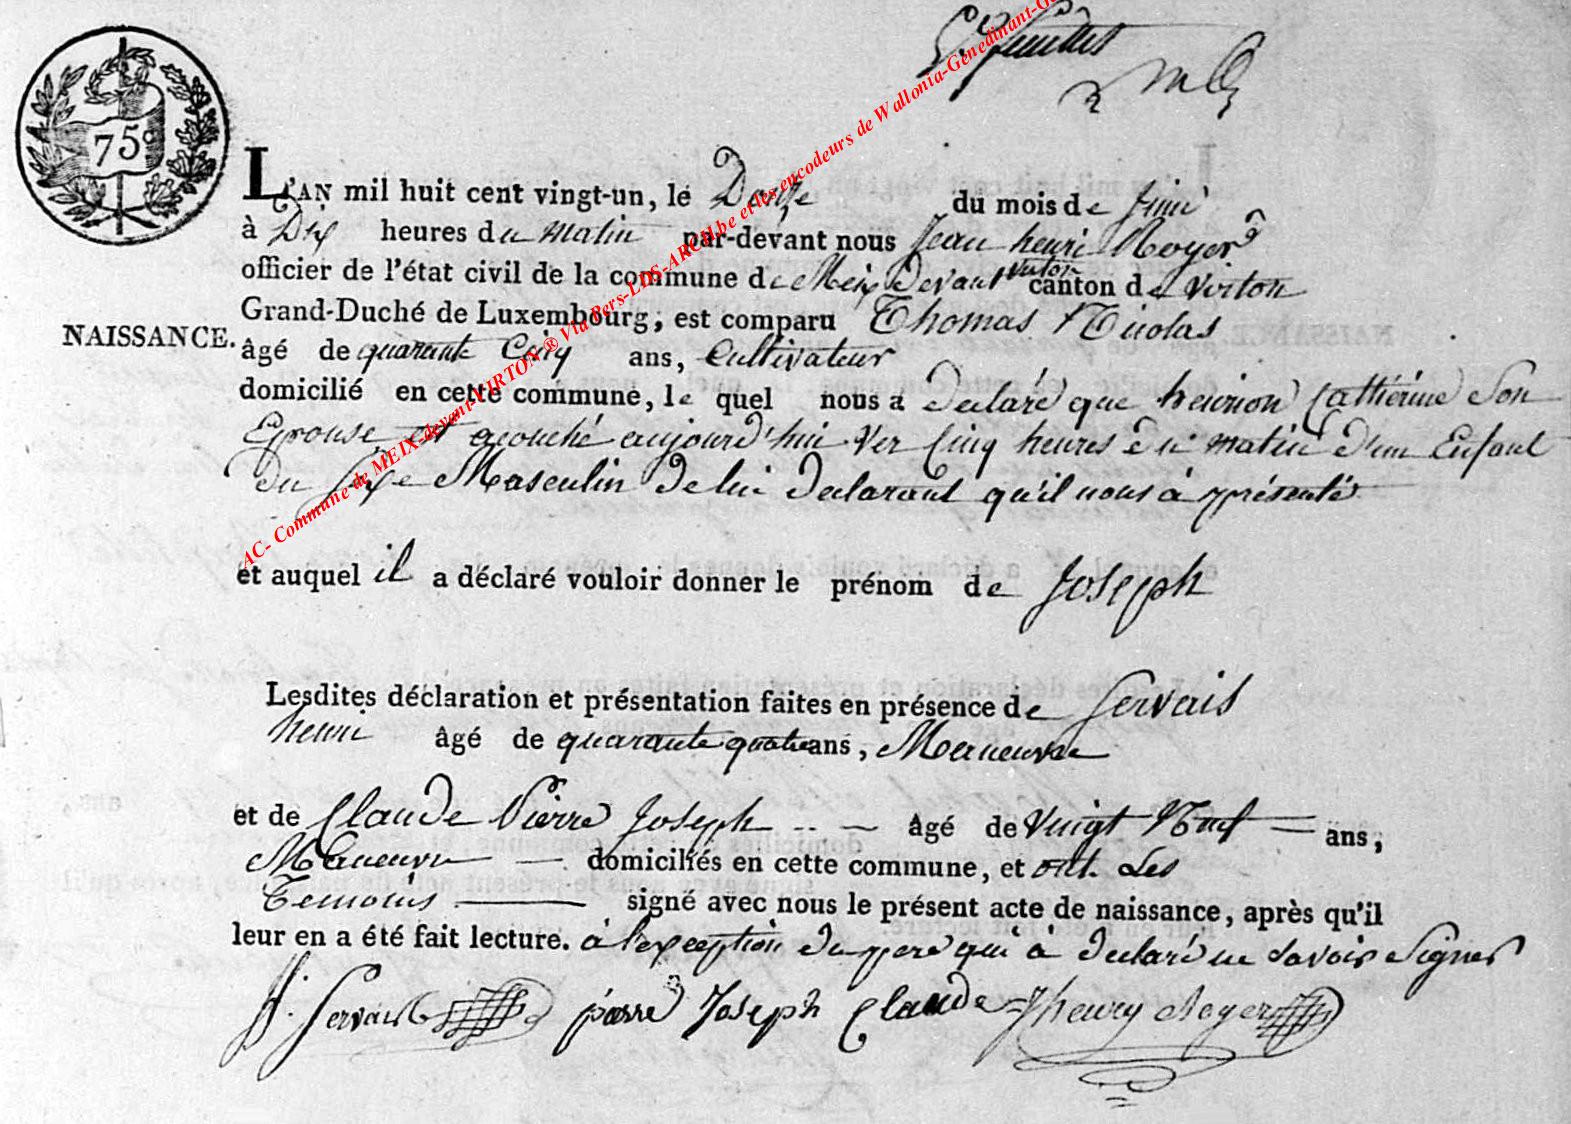 feuillet
75c
L'AN mil huit cent vingt-un, le Douze du mois de Juin
à Dix heures du matin par-devant nous Jean henri Royer
officier de l'état civil de la commune de Meix devant virton canton de virton
Grand-Duché de Luxembourg, est comparu Thomas Nicolas
NAISSANCE.
âgé de quarante Cinq ans, Cultivateur
domicilié en cette commune, le quel nous a declaré que henrion Cathérine Son
Epouse est acouché aujourd'hui Ver Cinq heures du matin d'un Enfant
du Sexe Masculin de lui declarant qu'il nous à présenté
et auquel il a déclaré vouloir donner le prénom de Joseph
Lesdites déclaration et présentation faites en présence de Gervais
henri âgé de quarante quatre ans, Maneuvre
et de Claude Pierre Joseph âgé de Vingt Neuf ans,
Maneuvre domiciliés en cette commune, et ont Les
Temoins signé avec nous le présent acte de naissance, après qu'il
leur en a été fait lecture. à l'exception du pere qui à declaré ne savoir Signer
h. Gervais pierre Joseph Claude Jhenry Roger
AC- Commune de MEIX-devant-VIRTON® Via Pers-LDS-ARCH.be et les encodeurs de Wallonia-Genedinant-G